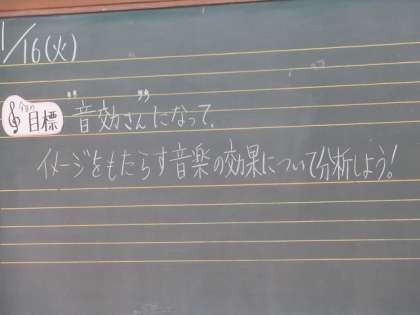 1/16(火)
今日の
目標
"音効さん"になって、
イメージをもたらす音楽の効果について分析しよう!